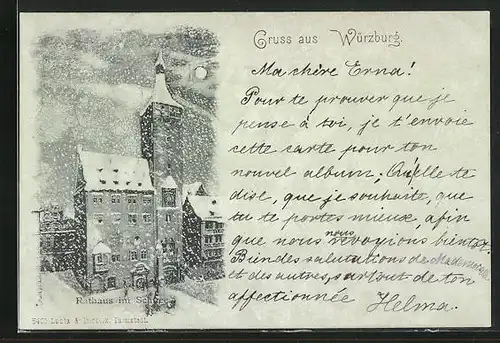 Gruss aus Würzburg.
Ma chère Erna!
Pour te prouver que je
pense à toi, je t'envoie
cette carte pour ton
nouvel album. Qu'elle te
dise, que je souhaite, que
tu te portes mieux, afin
que nous nous revoyions bientôt
Bien des salutations de
et des autres, surtout de ton
affectionnée Helma.
Rathaus im Schnee